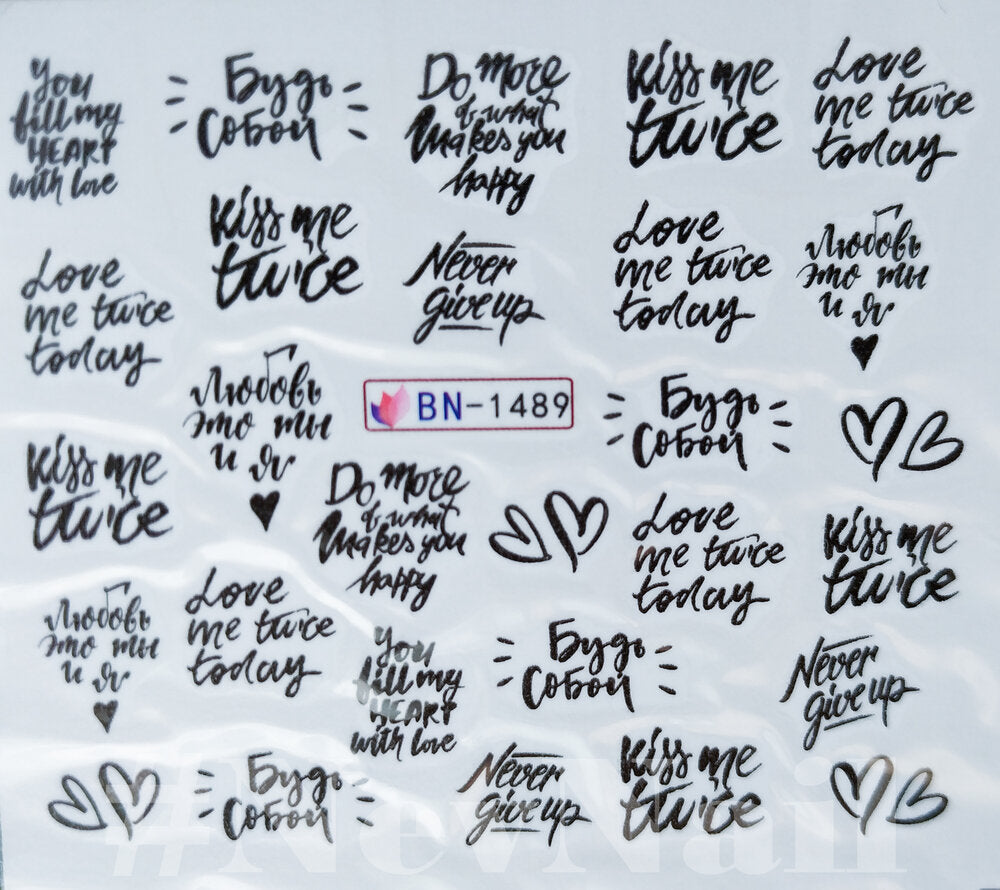 You
fill my
HEART
with love
Будь
Собой
Do more
of what
makes you
happy
Kiss me
twice
Love
me twice
today
Kiss me
twice
Never
give up
Love
me twice
today
Любовь
это ты
и я
Love
me twice
today
Любовь
это ты
и я
BN-1489
Будь
Собой
Kiss me
twice
Do more
of what
makes you
happy
Love
me twice
today
Kiss me
twice
Любовь
это ты
и я
Love
me twice
today
You
fill my
HEART
with love
Будь
Собой
Never
give up
Будь
Собой
Never
give up
Kiss me
twice
#NevNail